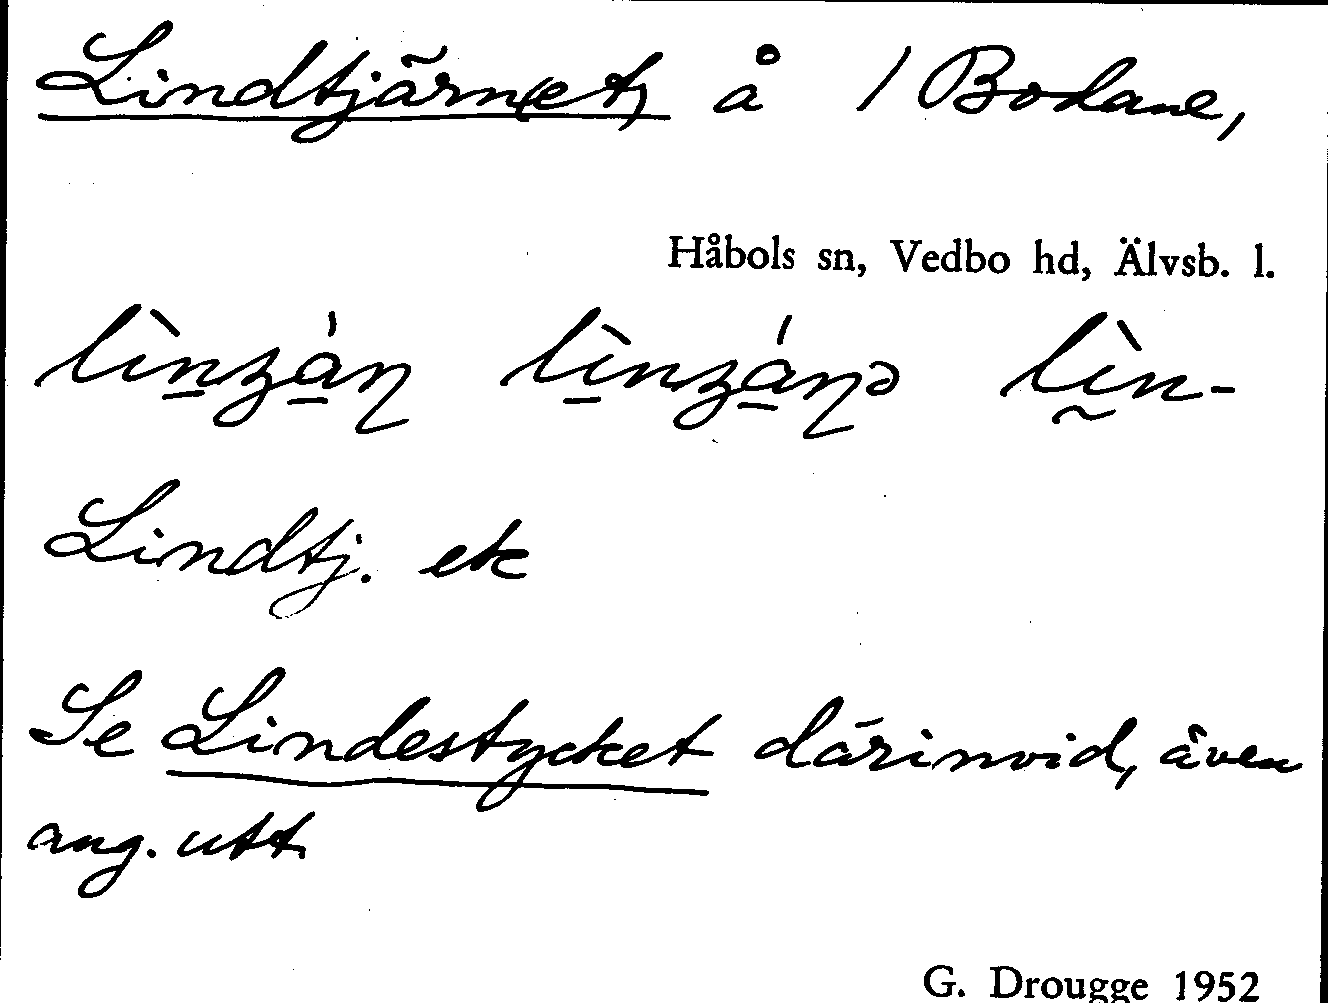 Lindtjärn(et) å / Bodane,
Håbols sn, Vedbo hd, Älvsb. l.
Lindtj. ek
Se Lindestycket därinvid, även
ang. utt.
G. Drougge 1952